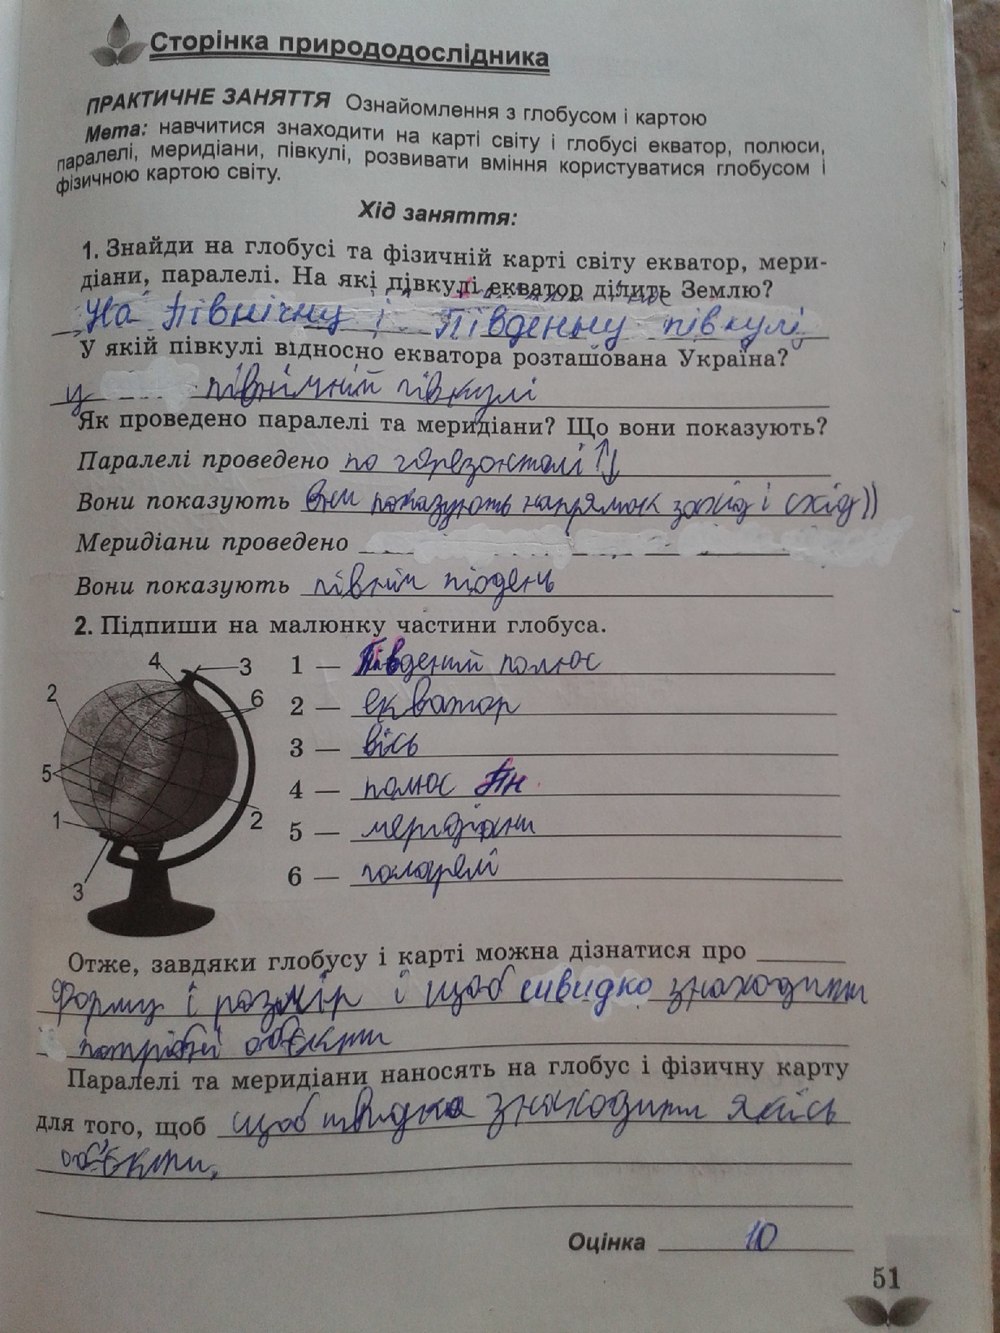 Сторінка природодослідника
ПРАКТИЧНЕ ЗАНЯТТЯ Ознайомлення з глобусом і картою
Мета: навчитися знаходити на карті світу і глобусі екватор, полюси,
паралелі, меридіани, півкулі, розвивати вміння користуватися глобусом і
фізичною картою світу.
Хід заняття:
1. Знайди на глобусі та фізичній карті світу екватор, мери-
діани, паралелі. На які півкулі екватор ділить Землю?
На північну і Південну півкулі
У якій півкулі відносно екватора розташована Україна?
у північній півкулі
Як проведено паралелі та меридіани? Що вони показують?
Паралелі проведено по горезонталі ↑↓
Вони показують вни показують напрямок захід і схід))
Меридіани проведено
Вони показують північ південь
2. Підпиши на малюнку частини глобуса.
4 3
2 6
5
1 2
3
1 — Південий полюс
2 — екватор
3 — вісь
4 — полюс Пн
5 — меридіани
6 — паларелі
Отже, завдяки глобусу і карті можна дізнатися про
форму і розмір і щоб швидко знаходити
потрібні об'єкти
Паралелі та меридіани наносять на глобус і фізичну карту
для того, щоб щоб швидко знаходити якісь
об'єкти.
Оцінка 10
51